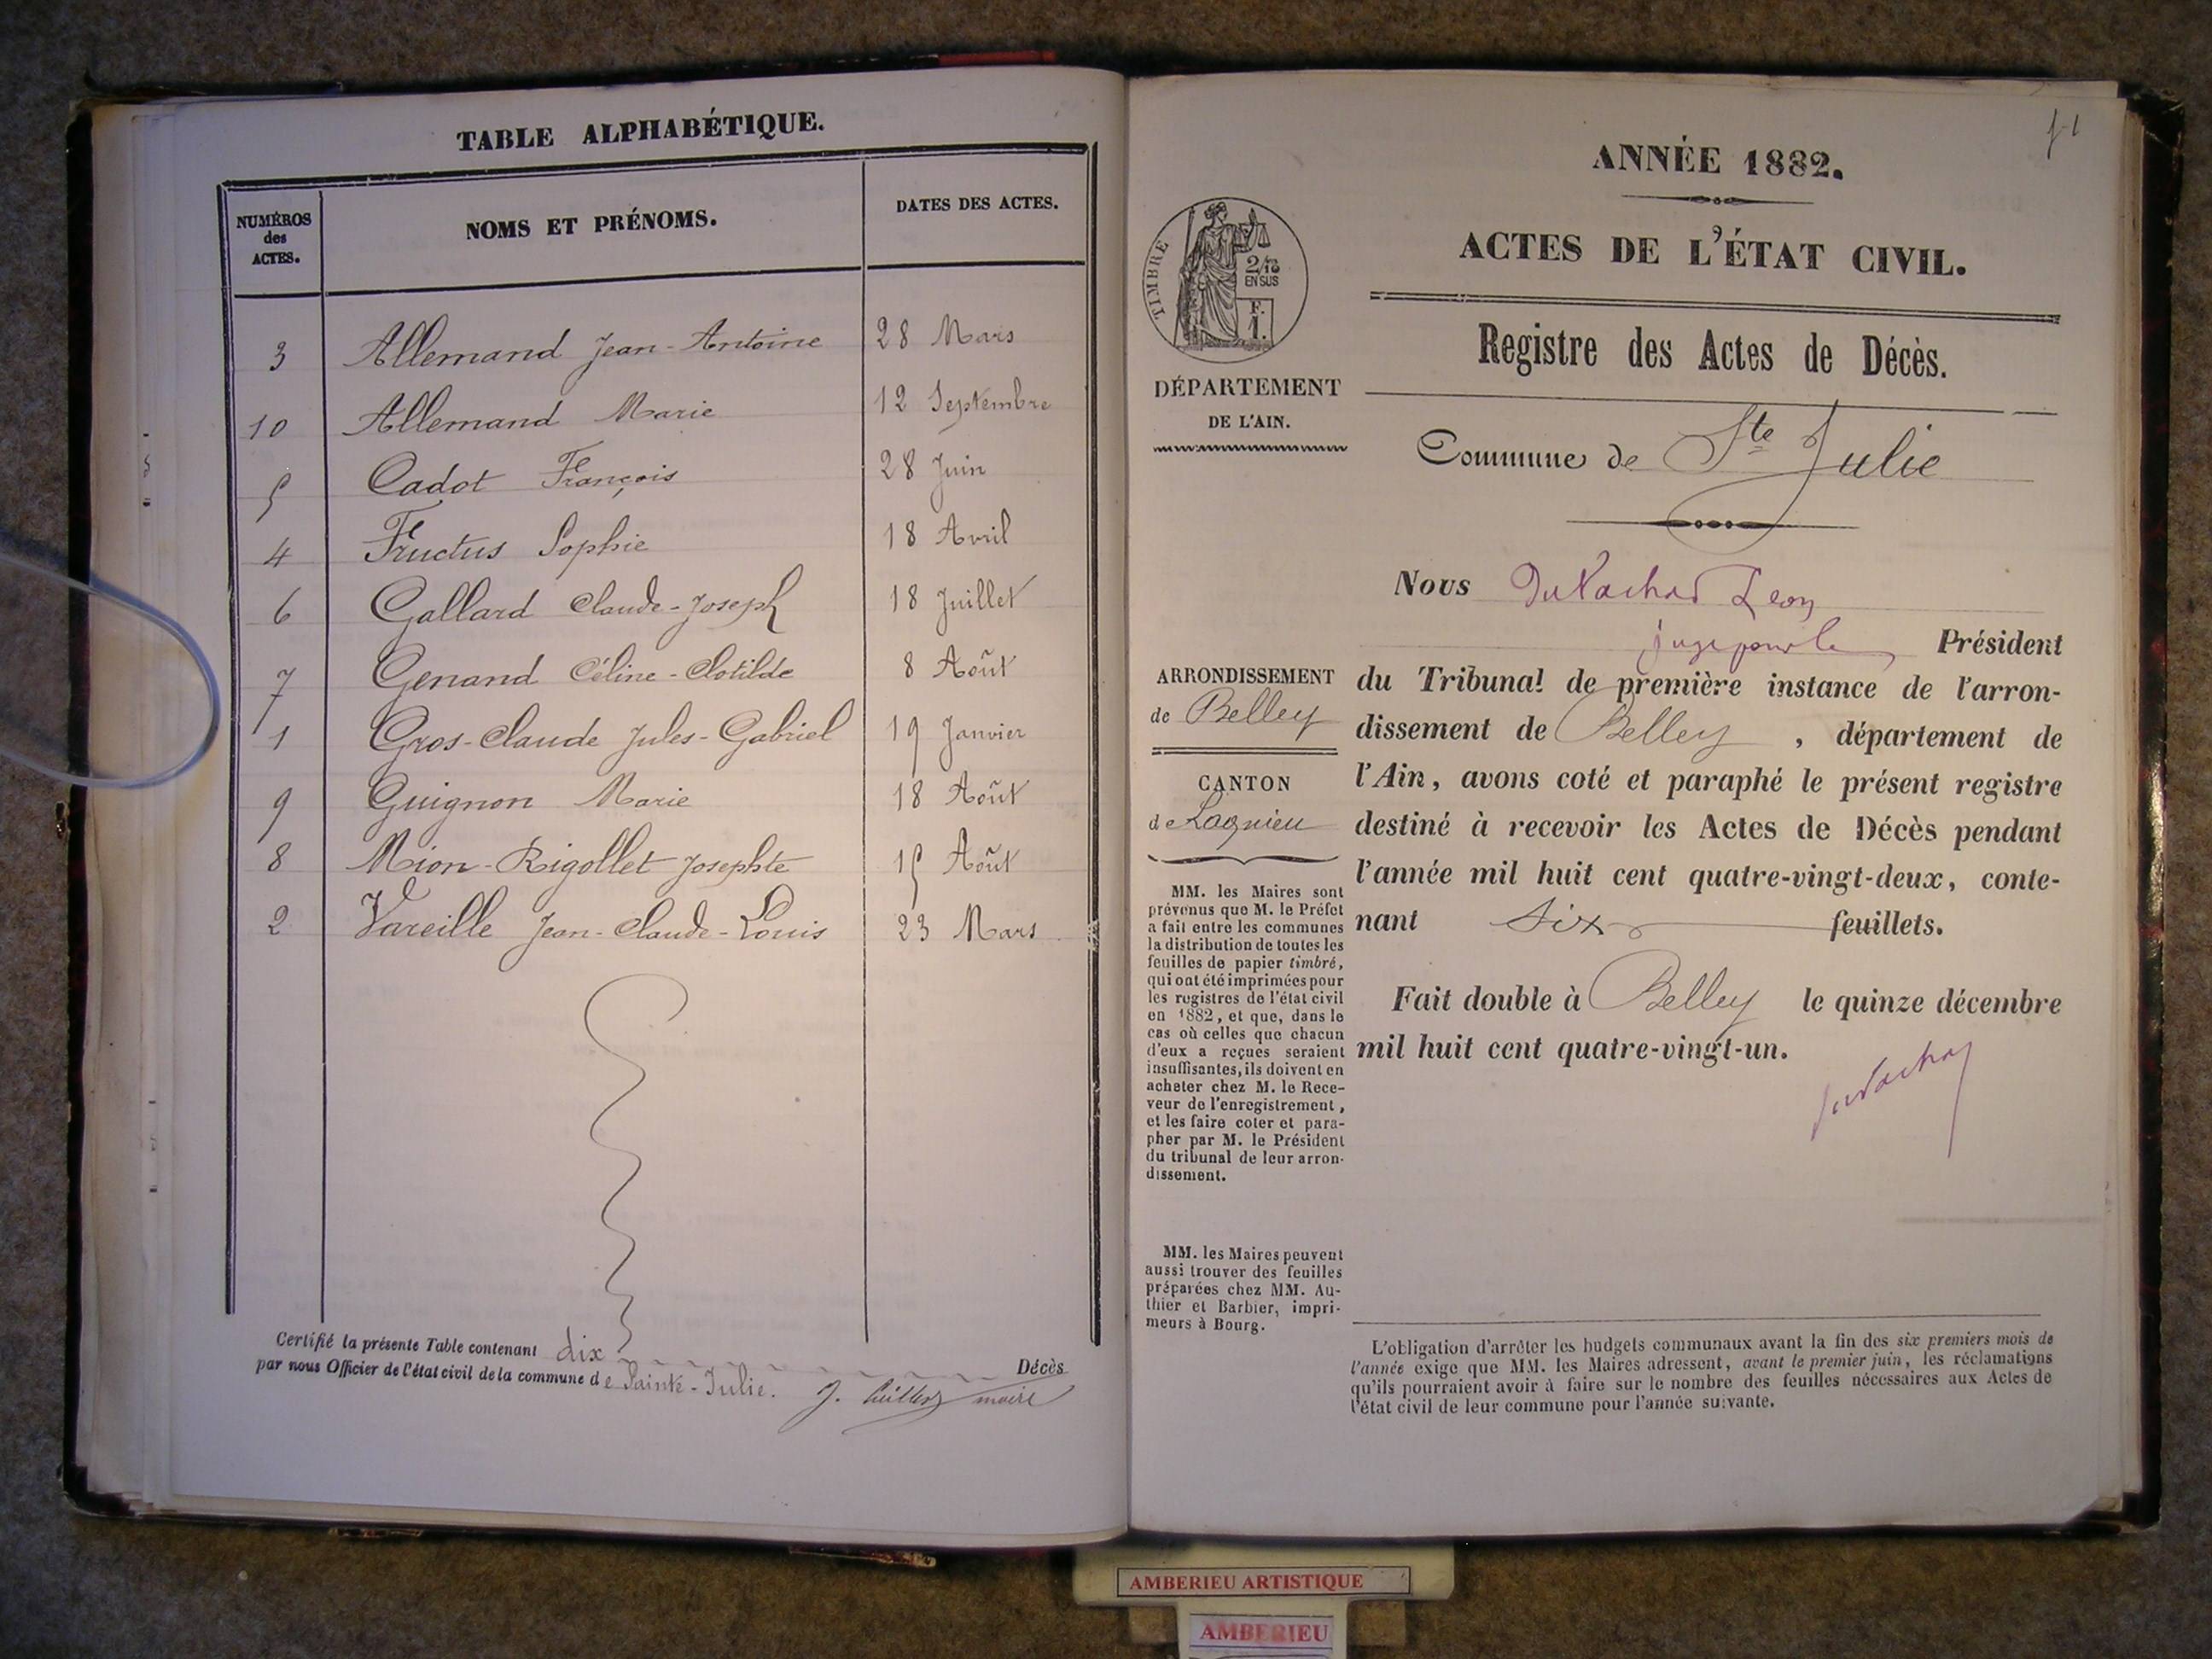 TABLE ALPHABÉTIQUE.
NUMÉROS des ACTES. NOMS ET PRÉNOMS. DATES DES ACTES.
3 Allemand Jean-Antoine 28 Mars
10 Allemand Marie 12 Septembre
5 Cadot François 28 Juin
4 Fructus Sophie 18 Avril
6 Gallard Claude-Joseph 18 Juillet
7 Genand Céline-Clotilde 8 Août
1 Gros-Claude Jules-Gabriel 19 Janvier
9 Guignon Marie 18 Août
8 Mion-Rigollet Josephte 15 Août
2 Vareille Jean-Claude-Louis 23 Mars
Certifié la présente Table contenant dix Décès
par nous Officier de l'état civil de la commune de Sainte-Julie. J. maire
ANNÉE 1882.
ACTES DE L'ÉTAT CIVIL.
TIMBRE
2/10
EN SUS
F.
1.
Registre des Actes de Décès.
DÉPARTEMENT
DE L'AIN.
Commune de Ste Julie
Nous Léon
juge pour le Président
du Tribunal de première instance de l'arron-
dissement de Belley, département de
l'Ain, avons coté et paraphé le présent registre
destiné à recevoir les Actes de Décès pendant
l'année mil huit cent quatre-vingt-deux, conte-
nant six feuillets.
Fait double à Belley le quinze décembre
mil huit cent quatre-vingt-un.
ARRONDISSEMENT
de Belley
CANTON
de Lagnieu
MM. les Maires sont
prévenus que M. le Préfet
a fait entre les communes
la distribution de toutes les
feuilles de papier timbré,
qui ont été imprimées pour
les registres de l'état civil
en 1882, et que, dans le
cas où celles que chacun
d'eux a reçues seraient
insuffisantes, ils doivent en
acheter chez M. le Rece-
veur de l'enregistrement,
et les faire coter et para-
pher par M. le Président
du tribunal de leur arron-
dissement.
MM. les Maires peuvent
aussi trouver des feuilles
préparées chez MM. Au-
thier et Barbier, impri-
meurs à Bourg.
L'obligation d'arrêter les budgets communaux avant la fin des six premiers mois de
l'année exige que MM. les Maires adressent, avant le premier juin, les réclamations
qu'ils pourraient avoir à faire sur le nombre des feuilles nécessaires aux Actes de
l'état civil de leur commune pour l'année suivante.
AMBERIEU ARTISTIQUE
AMBERIEU